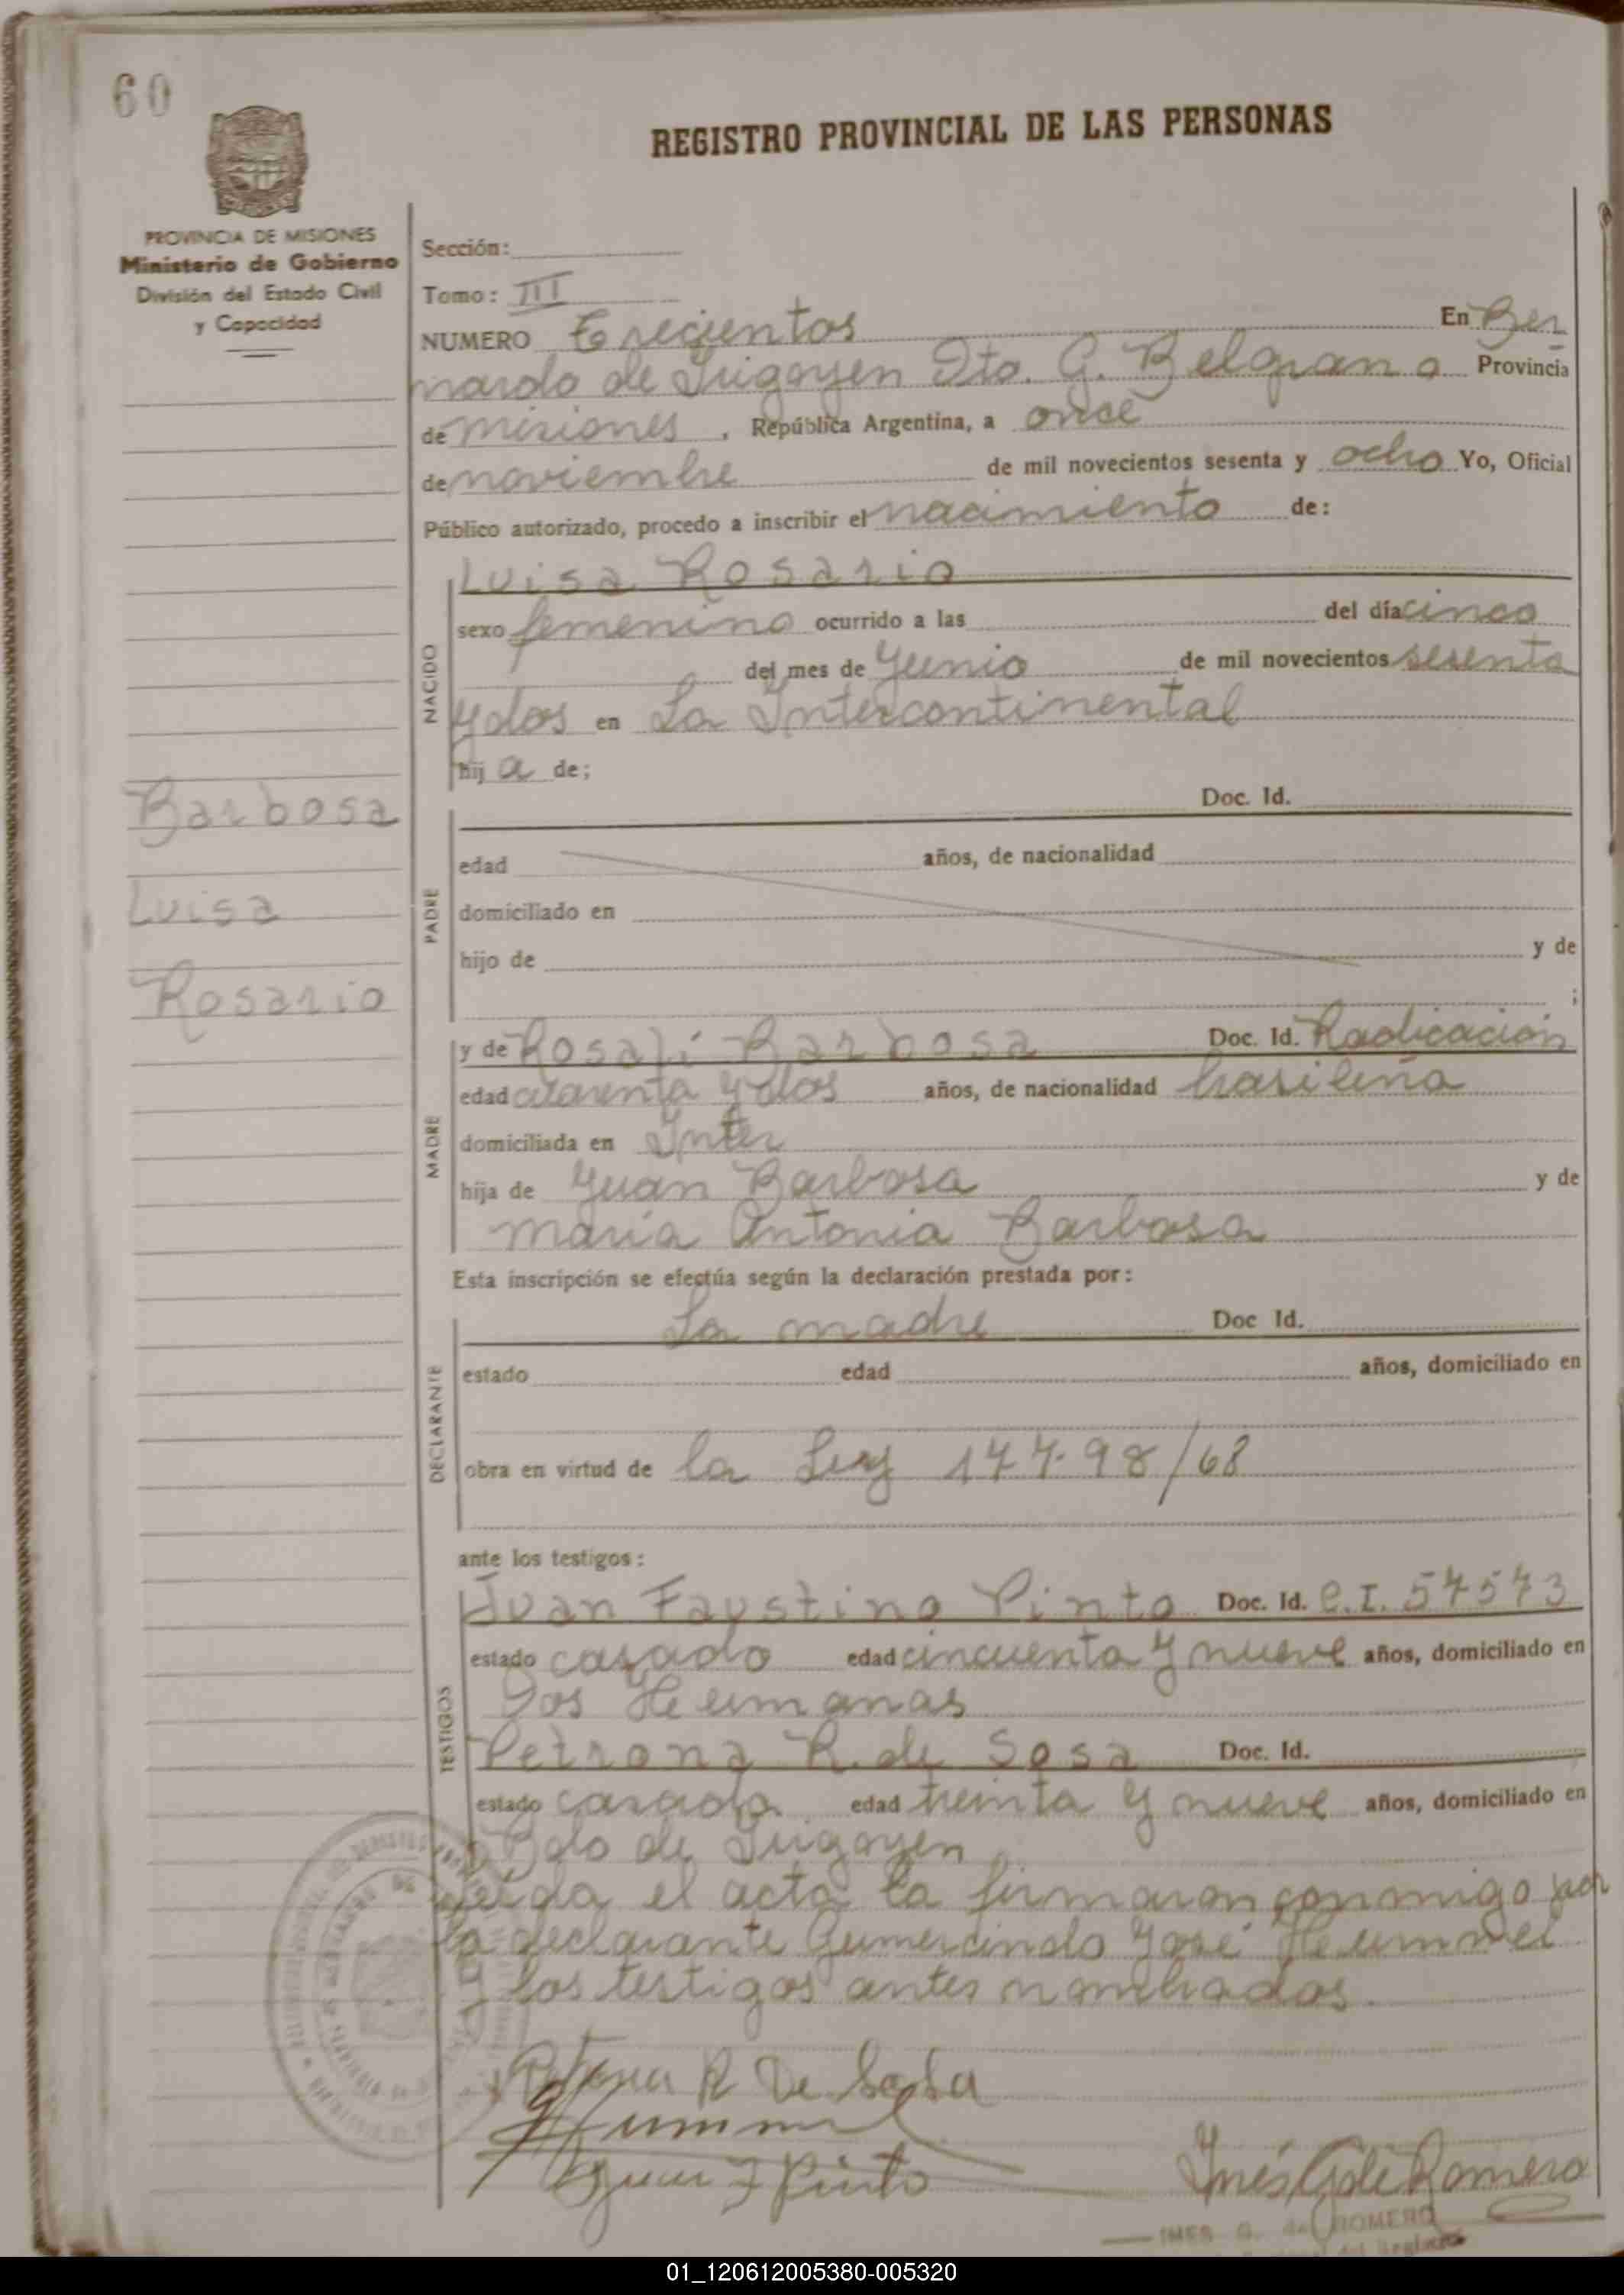 60
REGISTRO PROVINCIAL DE LAS PERSONAS
PROVINCIA DE MISIONES
Ministerio de Gobierno
División del Estado Civil
y Capacidad
Sección:
Tomo: III
NUMERO Trecientos En Ber
nardo de Irigoyen Dto. G. Belgrano Provincia
de misiones, República Argentina, a once
de noviembre de mil novecientos sesenta y ocho Yo, Oficial
Público autorizado, procedo a inscribir el nacimiento de:
NACIDO
Luisa Rosario
sexo femenino ocurrido a las del día cinco
del mes de Junio de mil novecientos sesenta
y dos en La Intercontinental
hij a de;
Barbosa
Luisa
Rosario
PADRE
Doc. Id.
edad años, de nacionalidad
domiciliado en
hijo de y de
;
MADRE
y de Rosali Barbosa Doc. Id. Radicación
edad cuarenta y dos años, de nacionalidad brasileña
domiciliada en Inter
hija de Juan Barbosa y de
María Antonia Barbosa
Esta inscripción se efectúa según la declaración prestada por:
DECLARANTE
La madre Doc Id.
estado edad años, domiciliado en
obra en virtud de la Ley 177.98/68
ante los testigos:
TESTIGOS
Juan Faustino Pinto Doc. Id. C.I. 57573
estado casado edad cincuenta y nueve años, domiciliado en
Dos Hermanas
Petrona R. de Sosa Doc. Id.
estado casada edad treinta y nueve años, domiciliado en
Bdo de Irigoyen
Leída el acta la firmaron conmigo por
la declarante Gumercindo José Hummel
y los testigos antes nombrados.
Petrona R De Sosa
Hummel
Juan F Pinto
Inés G de Romero
INES G. de ROMERO
01_120612005380-005320